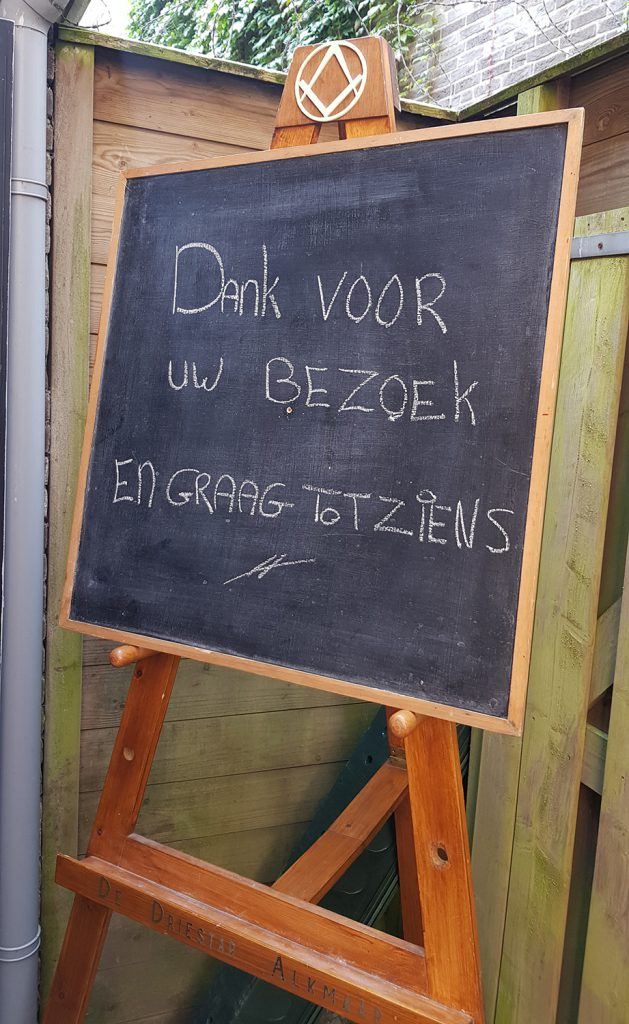 Dank VOOR
UW BEZOEK
EN GRAAG TOT ZIENS
DE DRIESTAR ALKMAAR